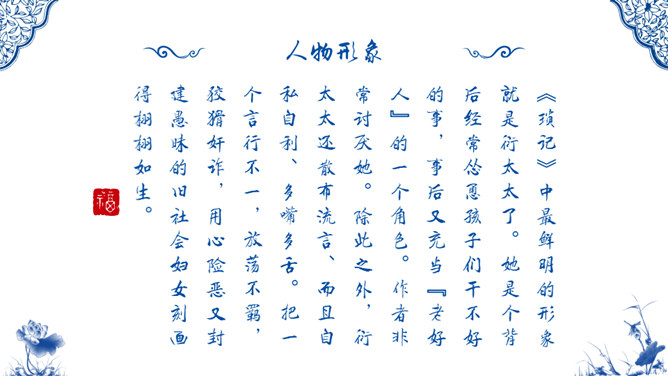 人物形象
《琐记》中最鲜明的形象
就是衍太太了。她是个背
后经常怂恿孩子们干不好
的事，事后又充当『老好
人』的一个角色。作者非
常讨厌她。除此之外，衍
太太还散布流言、而且自
私自利、多嘴多舌。把一
个言行不一，放荡不羁，
狡猾奸诈，用心险恶又封
建愚昧的旧社会妇女刻画
得栩栩如生。
福